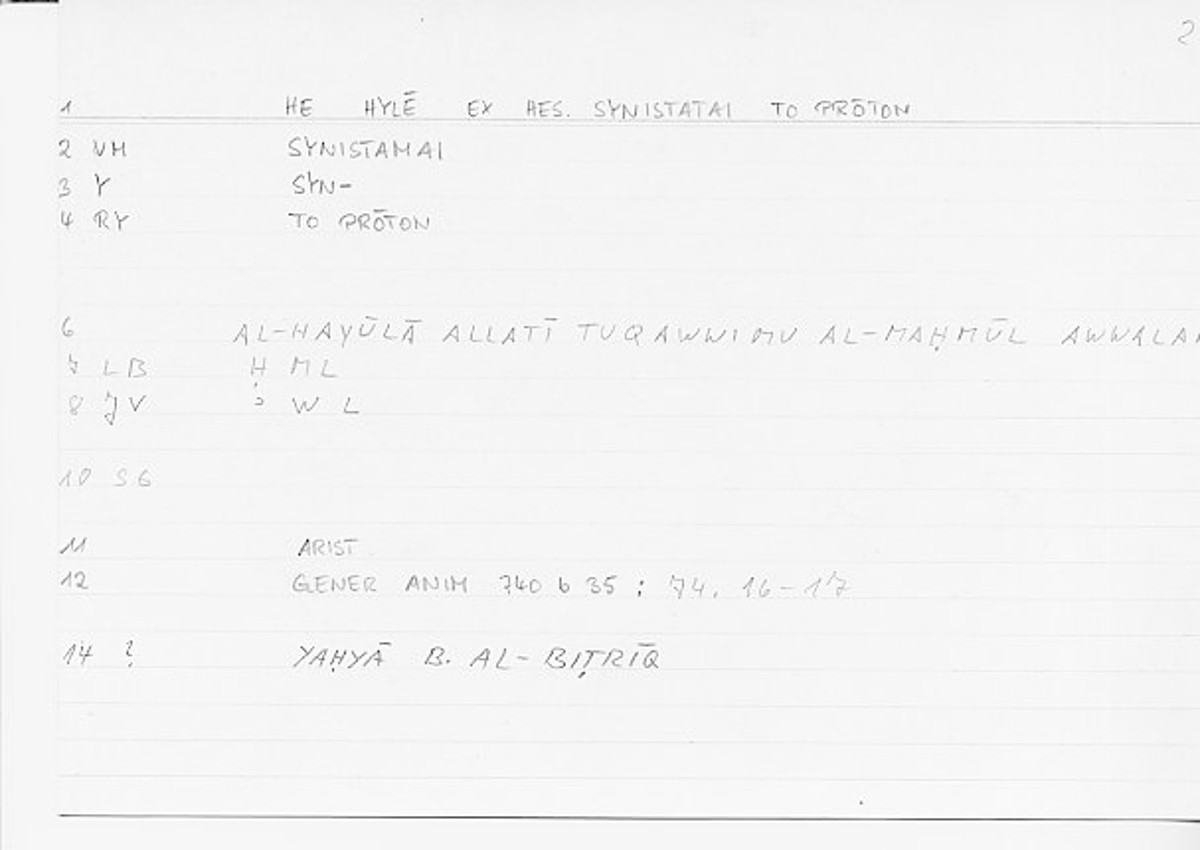 2
1 HE HYLĒ EX HES. SYNISTATAI TO PRŌTON
2 VM SYNISTAMAI
3 Y SYN-
4 RY TO PRŌTON
6 AL-HAYŪLĀ ALLATĪ TUQAWWIMU AL-MAḤMŪL AWWALAN
7 LB Ḥ ML
8 JV ʾ W L
10 S6
11 ARIST
12 GENER ANIM 740 b 35 : 74, 16-17
14 ? YAḤYĀ B. AL-BIṬRĪQ